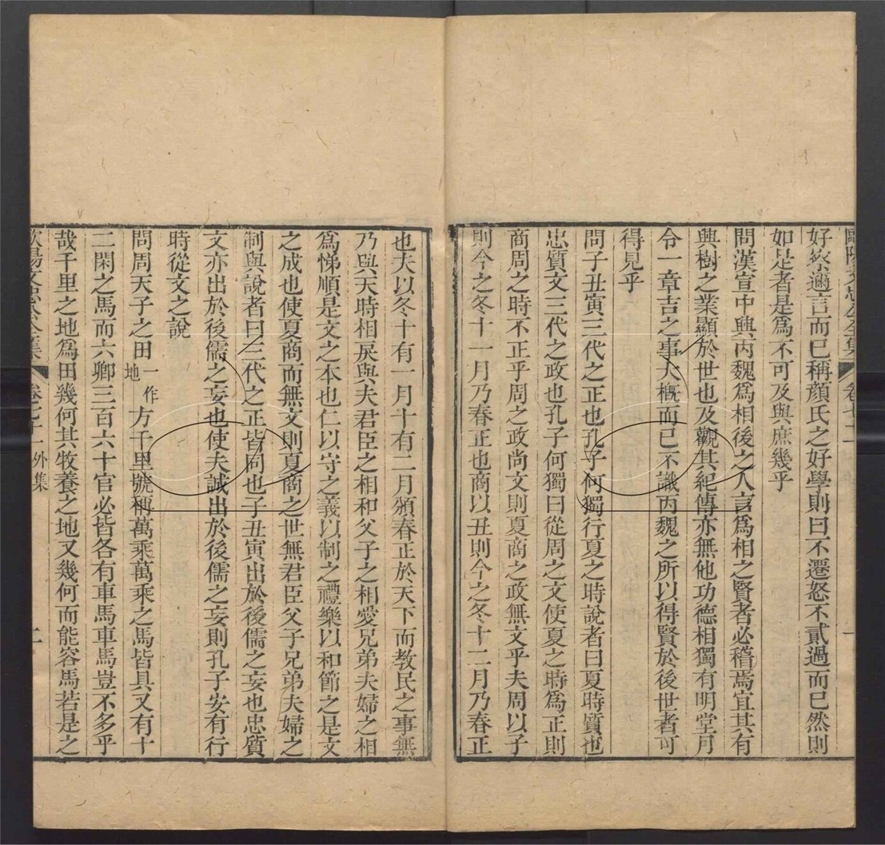 好察邇言而已稱顏氏之好學則曰不遷怒不貳過而已然則
如是者是爲不可及與庶幾乎
問漢宣中興丙魏爲相後之人言爲相之賢者必稽焉宜其有
興樹之業顯於世也及觀其紀傳亦無他功德相獨有明堂月
令一章吉之事大槪而已不識丙魏之所以得賢於後世者可
得見乎
問子丑寅三代之正也孔子何獨行夏之時說者曰夏時質也
忠質文三代之政也孔子何獨曰從周之文使夏之時爲正則
商周之時不正乎周之政尚文則夏商之政無文乎夫周以子
則今之冬十一月乃春正也商以丑則今之冬十二月乃春正
歐陽文忠公全集 卷七十一 一
也夫以冬十有一月十有二月頒春正於天下而教民之事無
乃與天時相戾與夫君臣之相和父子之相愛兄弟夫婦之相
爲悌順是文之本也仁以守之義以制之禮樂以和節之是文
之成也使夏商而無文則夏商之世無君臣父子兄弟夫婦之
制與說者曰三代之正皆同也子丑寅出於後儒之妄也忠質
文亦出於後儒之妄也使夫誠出於後儒之妄則孔子安有行
時從文之說
問周天子之田一作地方千里號稱萬乘萬乘之馬皆具又有十
二閑之馬而六卿三百六十官必皆各有車馬車馬豈不多乎
哉千里之地爲田幾何其牧養之地又幾何而能容馬若是之
歐陽文忠公全集 卷七十一 外集 二